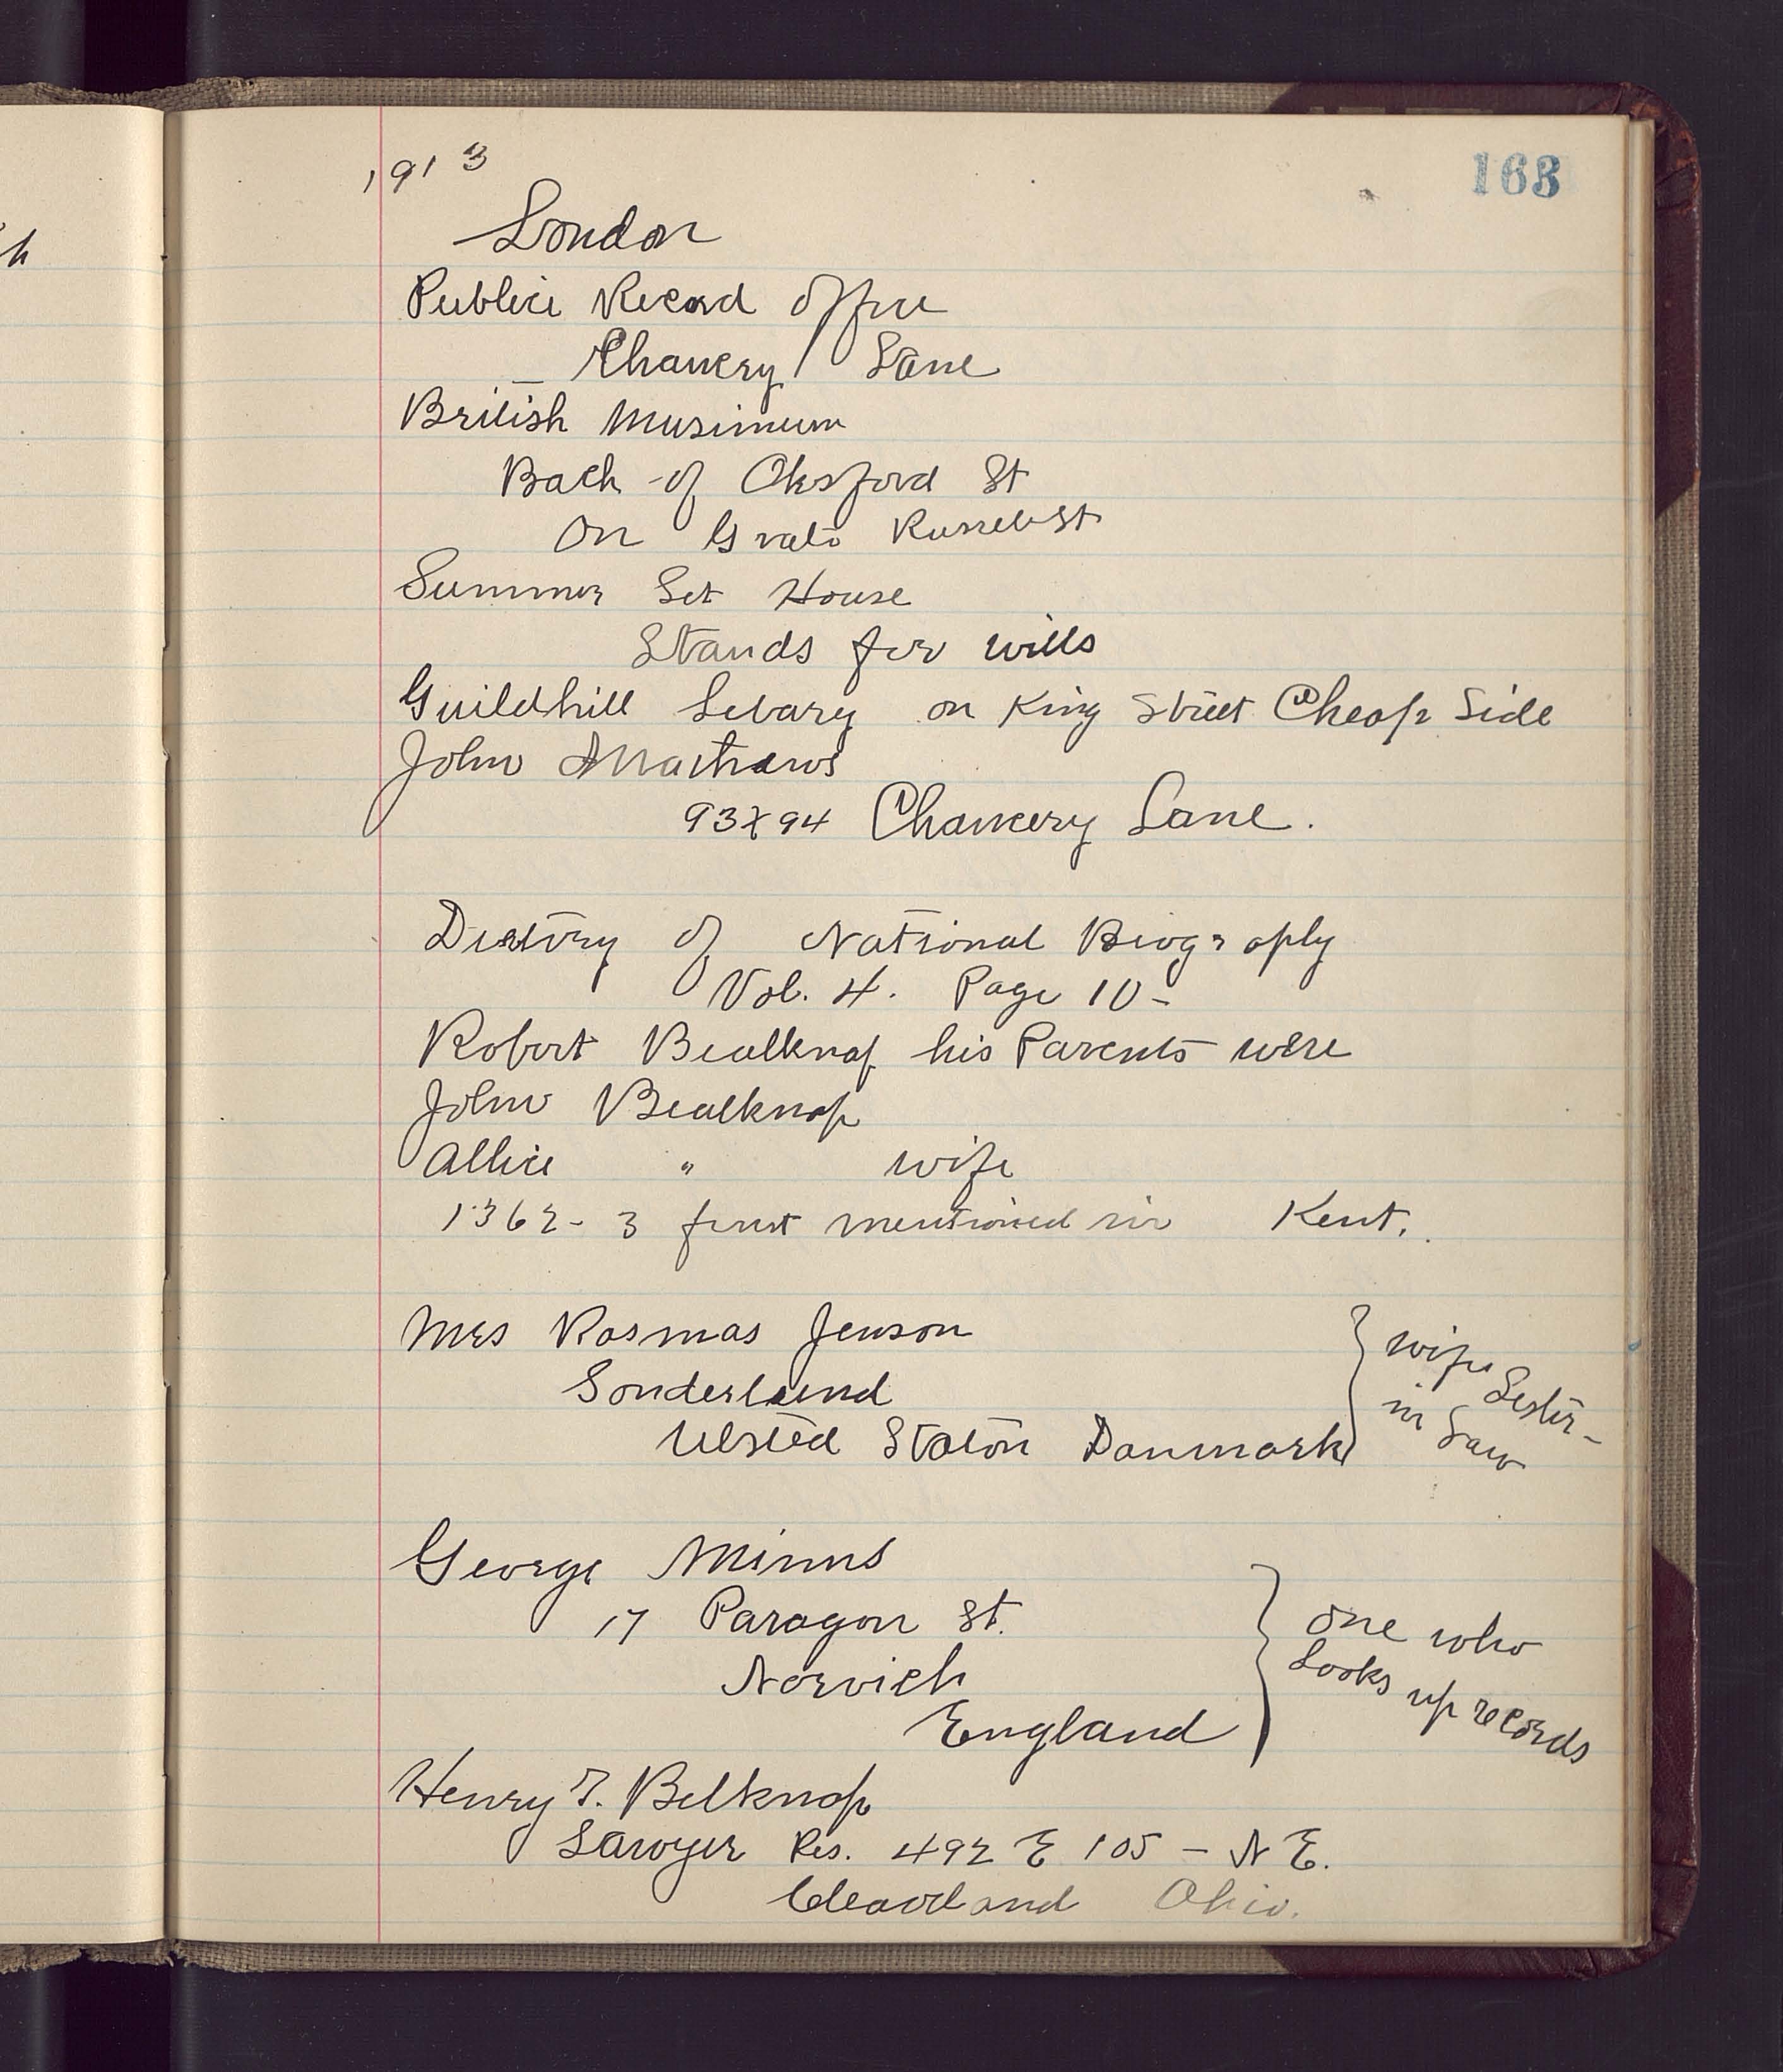 163
1913
London
Publici Record Office
Chancery Lane
British Musimum
Back of Oksford St
On Grate Russell St
Summer Set House
Stands for wills
Guildhill Lebary on King Street Cheap Side
John Mathews
93 & 94 Chancery Lane.
Dictory of National Biography
Vol. 4. Page 10-
Robert Bealknap his Parents were
John Bealknap
Allice " wife
1362-3 first mentioned in Kent.
Mrs Rasmas Jenson
Sonderlaund
Ulsted Staton Danmark
} wife Sester-
in Law
George Minns
17 Paragon St.
Norvich
England
} One who
Looks up records
Henry T. Belknap
Lawyer Res. 492 E 105 - N E.
Cleaveland Ohio.